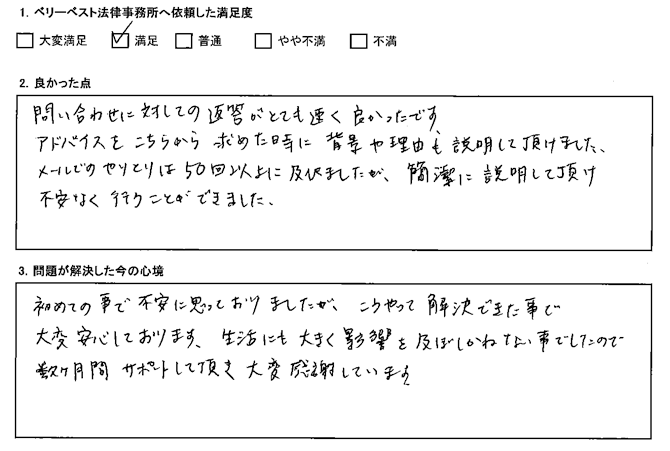 1. ベリーベスト法律事務所へ依頼した満足度
□ 大変満足 ☑ 満足 □ 普通 □ やや不満 □ 不満
2. 良かった点
問い合わせに対しての返答がとても速く良かったです
アドバイスをこちらから求めた時に背景や理由も説明して頂けました、
メールでのやりとりは50回以上に及びましたが、簡潔に説明して頂け
不安なく行うことができました、
3. 問題が解決した今の心境
初めての事で不安に思っておりましたが、こうやって解決できた事で
大変安心しております、生活にも大きく影響を及ぼしかねない事でしたので
数ヶ月間サポートして頂き大変感謝しています